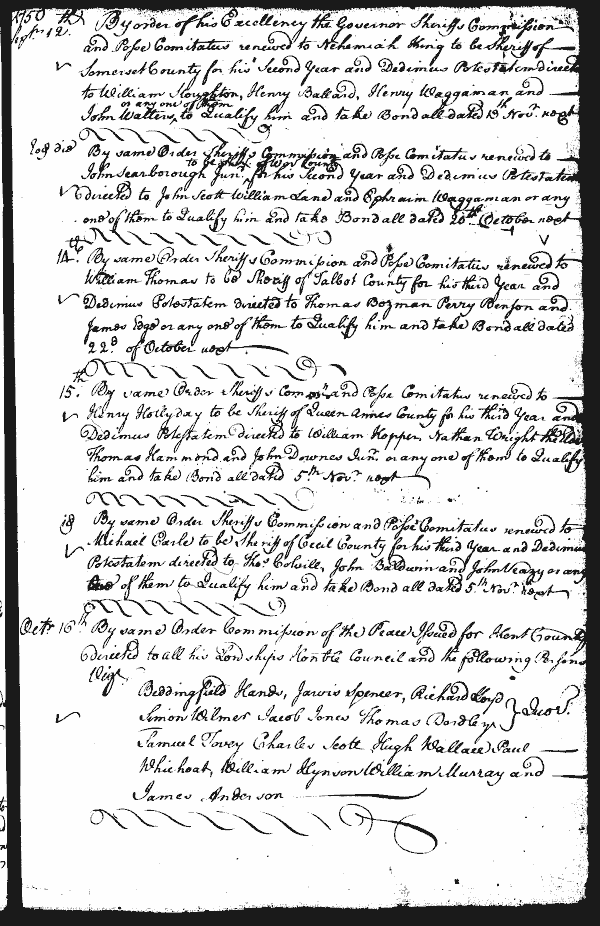 1750
Sepr. 12th. By order of his Excellency the Governor Sheriffs Commission
and Posse Comitatus renewed to Nehemiah King to be Sheriff of
Somerset County for his Second Year and Dedimus Potestatem directed
to William Stoughton, Henry Ballard, Henry Waggaman and
or any one of them
John Walters, to Qualify him and take Bond all dated 13th Novr. next
Eod die By same Order Sheriffs Commission and Posse Comitatus renewed to
to be Sheriff of Wor County
John Scarborough Junr. for his Second Year and Dedimus Potestatem
directed to John Scott William Lane and Ephraim Waggaman or any
one of them to Qualify him and take Bond all dated 20th October next
14th. By same Order Sheriffs Commission and Posse Comitatus renewed to
William Thomas to be Sheriff of Talbot County for his third Year and
Dedimus Potestatem directed to Thomas Bozman Perry Benson and
James Edge or any one of them to Qualify him and take Bond all dated
22d of October next
15th. By same Order Sheriffs Comon. and Posse Comitatus renewed to
Henry Hollyday to be Sheriff of Queen Annes County for his third Year and
Dedimus Potestatem directed to William Hopper, Nathan Wright
Thomas Hammond and John Downes Junr. or any one of them to Qualify
him and take Bond all dated 5th Novr. next
18 By same Order Sheriffs Commission and Posse Comitatus renewed to
Michael Earle to be Sheriff of Cecil County for his third Year and Dedimus
Potestatem directed to Thos. Colvill, John Baldwin and John Veazy or any
One of them to Qualify him and take Bond all dated 5th Novr. next
Octr. 16th By same Order Commission of the Peace Issued for Kent County
directed to all his Lordships Honble Council and the following Persons
Vizt.
Beddingfield Hands, Jarvis Spencer, Richard Lloyd
Simon Wilmer Jacob Jones Thomas Bordley } Quor.
Samuel Tovey Charles Scott Hugh Wallace Paul
Whichcoat, William Hynson William Murray and
James Anderson